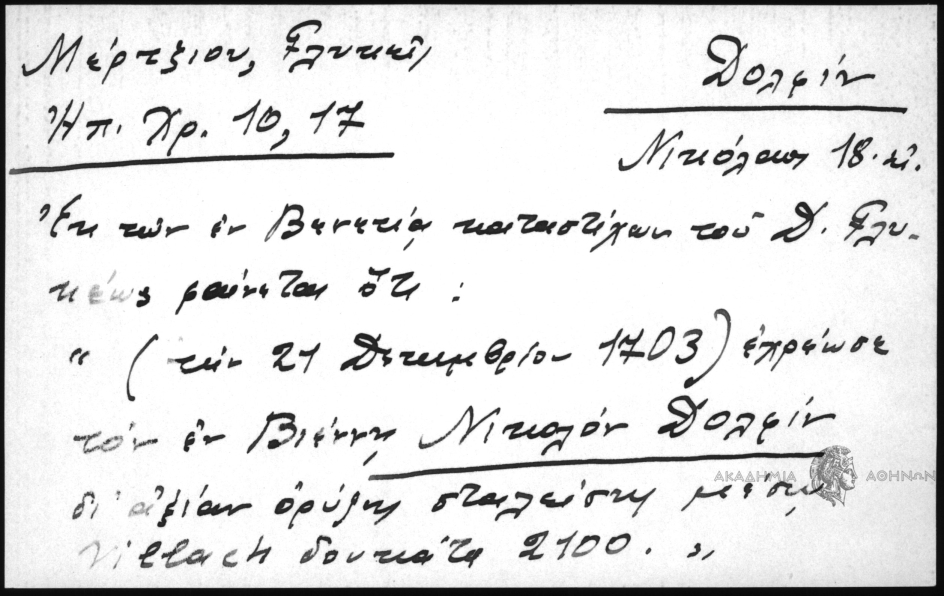 Μέρτζιου, Γλυκεῖς
Δολφίν
Ἠπ. Χρ. 10, 17
Νικόλαος 18. αἰ.
Ἐκ τῶν ἐν Βενετίᾳ καταστίχων τοῦ Δ. Γλυ-
κέως φαίνεται ὅτι :
" (τὴν 21 Δεκεμβρίου 1703) ἐχρέωσε
τὸν ἐν Βιέννῃ Νικολὸν Δολφίν
δι' ἀξίαν ὀρύζης σταλείσης μέσῳ
Villach δουκάτα 2100. "
ΑΚΑΔΗΜΙΑ ΑΘΗΝΩΝ